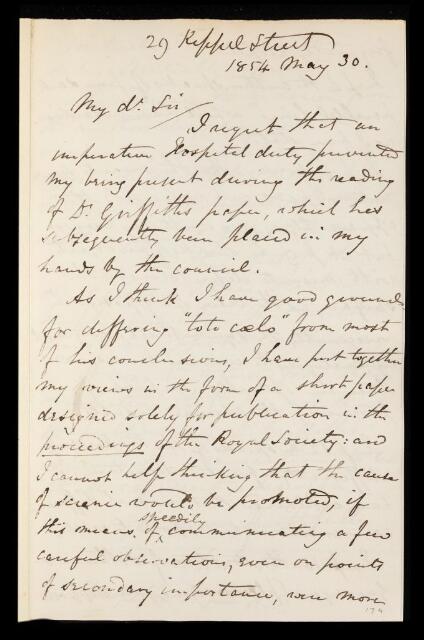 29 Keppel Street
1854 May 30.
My dr. Sir
I regret that an
imperative Hospital duty prevented
my being present during the reading
of Dr. Griffiths paper, which has
subsequently been placed in my
hands by the council.
As I think I have good grounds
for differing "toto cœlo" from most
of his conclusions, I have put together
my views in the form of a short paper
designed solely for publication in the
proceedings of the Royal Society: and
I cannot help thinking that the cause
of science would be promoted, if
this means of speedily communicating a few
careful observations, even on points
of secondary importance, were more